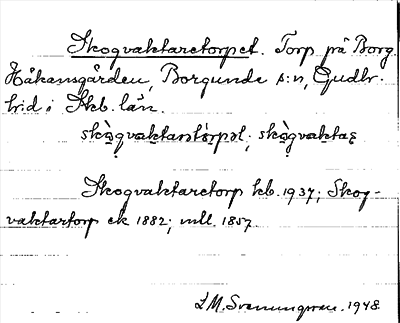 Skogvaktaretorpet. Torp på Borg
Håkansgården, Borgunda s:n, Gudhr.
hrd i Skb. län.
skògvaktarətòrpət; skògvaktaṣ
Skogvaktaretorp kb. 1937; Skog-
vaktartorp ek 1882; mll. 1857.
L M. Svenungsson. 1948.